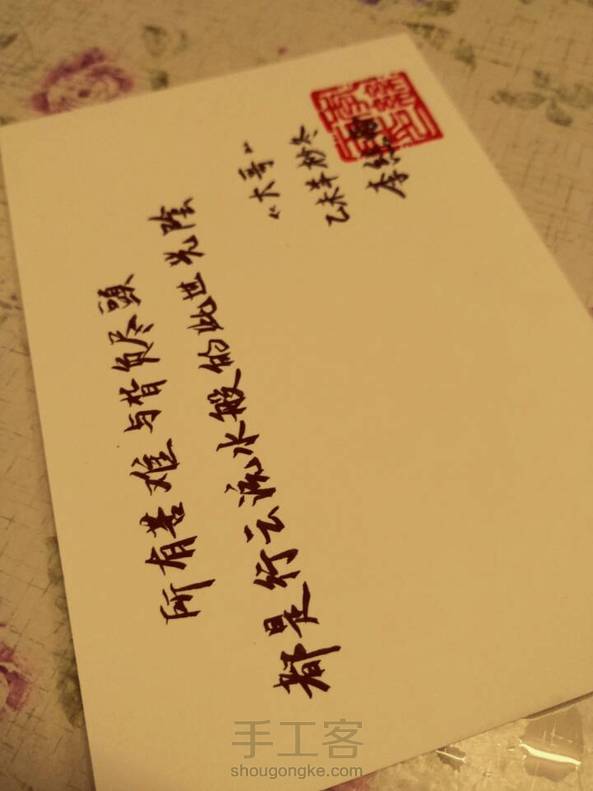 所有苦难与背负尽頭
都是行云流水般的此世光陰
“大哥”
乙未年杪冬
李
手工客
shougongke.com